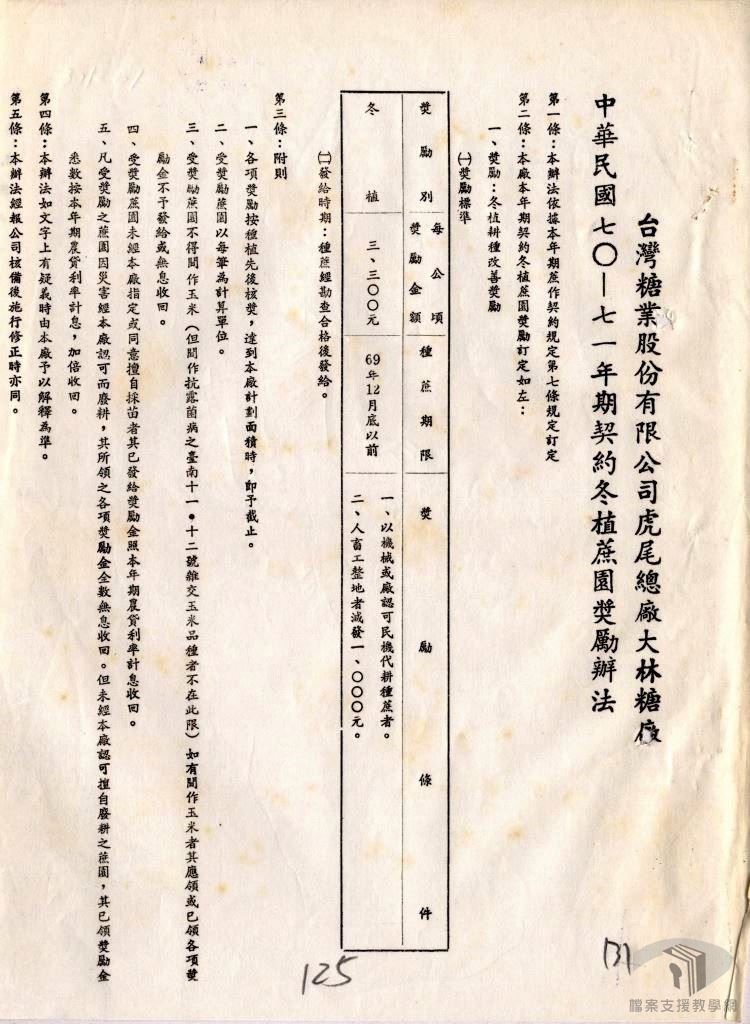 台灣糖業股份有限公司虎尾總廠大林糖廠
中華民國七〇—七一年期契約冬植蔗園獎勵辦法
第一條：本辦法依據本年期蔗作契約規定第七條規定訂定
第二條：本廠本年期契約冬植蔗園獎勵訂定如左：
一、獎勵：冬植耕種改善獎勵
㈠獎勵標準
獎勵別
每公頃獎勵金額
種蔗期限
獎勵條件
冬植
三、三〇〇元
69年12月底以前
一、以機械或廠認可民機代耕種蔗者。
二、人畜工整地者減發一、〇〇〇元。
㈡發給時期：種蔗經勘查合格後發給。
第三條：附則
一、各項獎勵按種植先後核獎，達到本廠計劃面積時，即予截止。
二、受獎勵蔗園以每筆為計算單位。
三、受獎勵蔗園不得間作玉米（但間作抗露菌病之臺南十一•十二號雜交玉米品種者不在此限）如有間作玉米者其應領或已領各項獎
勵金不予發給或無息收回。
四、受獎勵蔗園未經本廠指定或同意擅自採苗者其已發給獎勵金照本年期農貸利率計息收回。
五、凡受獎勵之蔗園因災害經本廠認可而廢耕，其所領之各項獎勵金全數無息收回。但未經本廠認可擅自廢耕之蔗園，其已領獎勵金
悉數按本年期農貸利率計息，加倍收回。
第四條：本辦法如文字上有疑義時由本廠予以解釋為準。
第五條：本辦法經報公司核備後施行修正時亦同。
125
131
檔案支援教學網